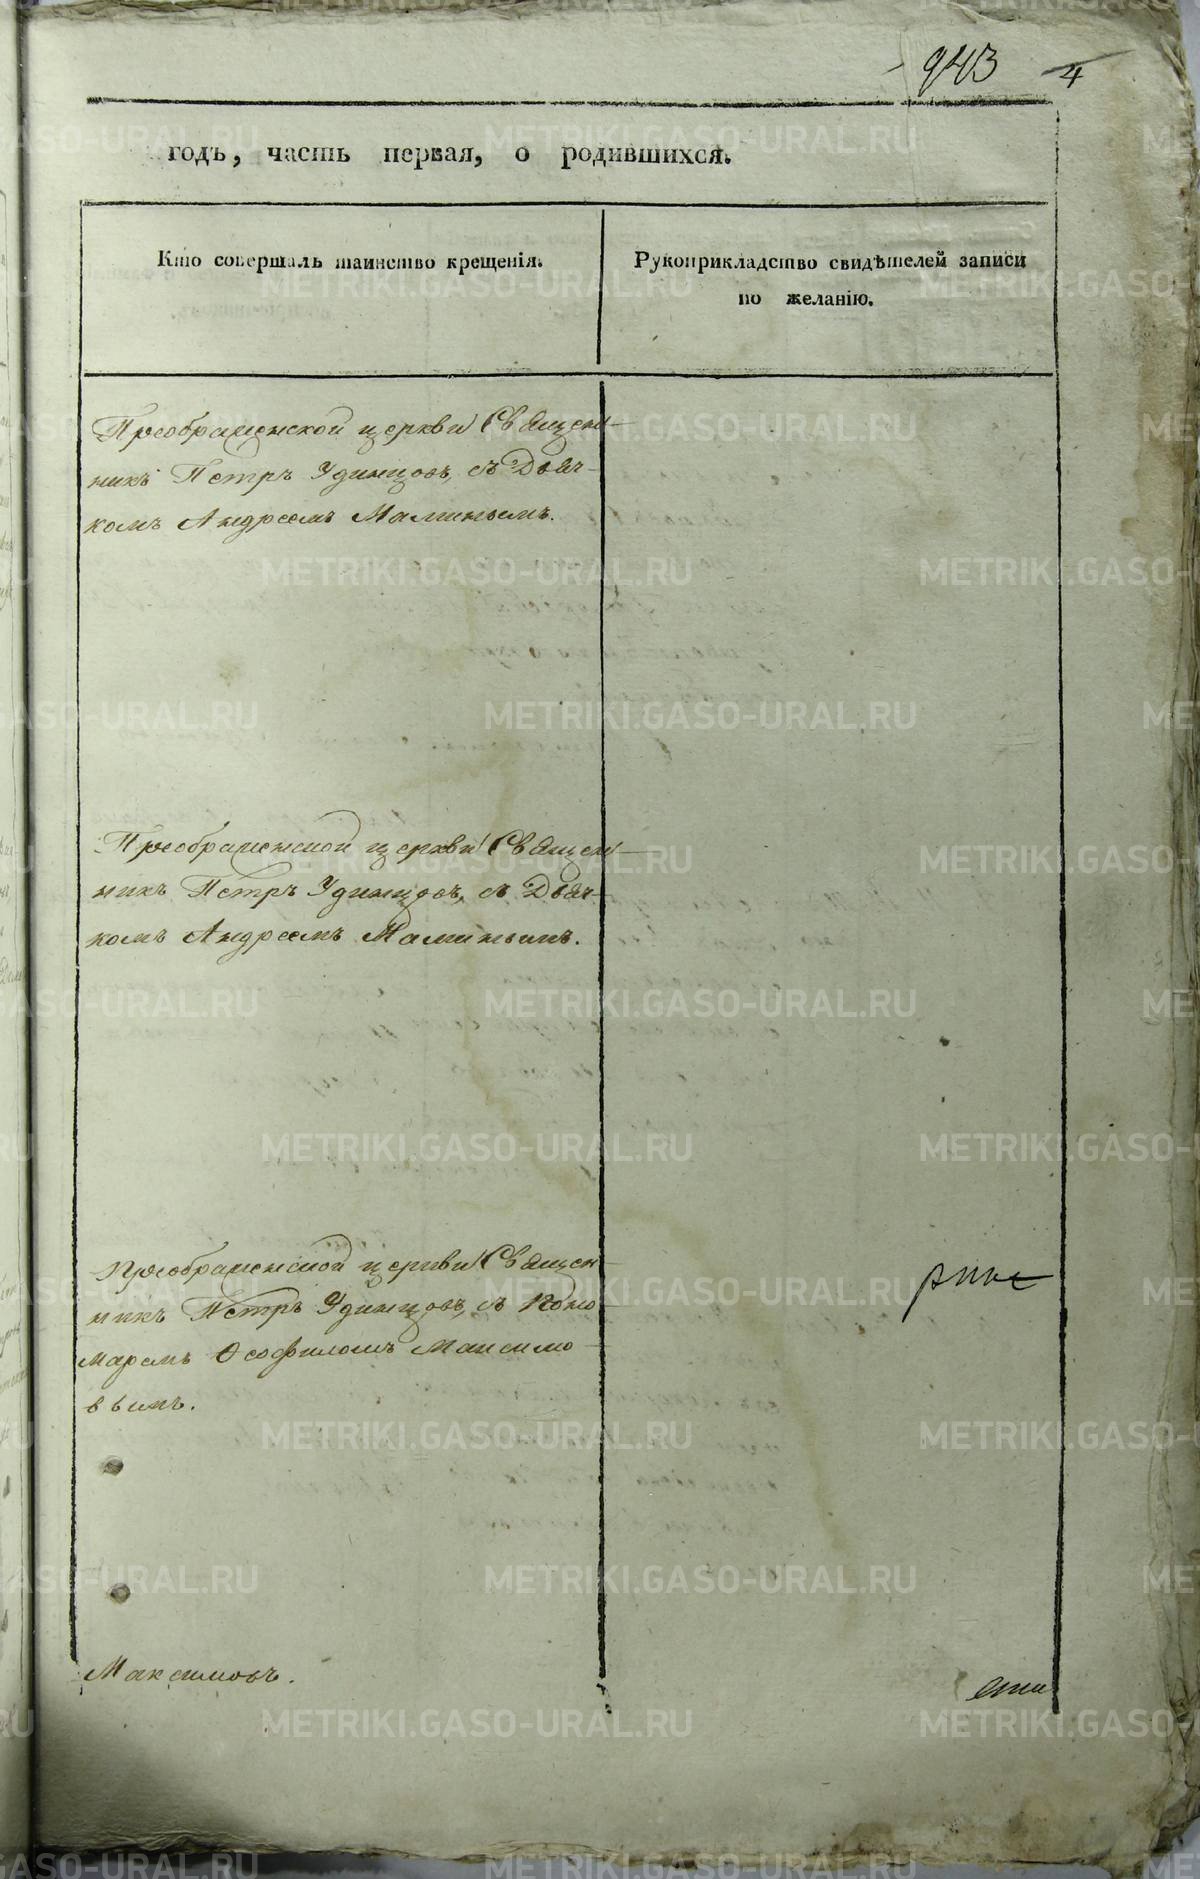 943 4
годъ, часть первая, о родившихся.
Кто совершалъ таинство крещенія.
Рукоприкладство свидѣтелей записи
по желанію.
Преображенской церкви Священ
никъ Петръ Удинцовъ, съ Дьяч-
комъ Андреемъ Маминымъ.
Преображенской церкви Священ
никъ Петръ Удинцовъ, съ Дьяч-
комъ Андреемъ Маминымъ.
Преображенской церкви Священ
никъ Петръ Удинцовъ, съ Поно
маремъ Ѳеофиломъ Максимо
вымъ.
Максимовъ.
METRIKI.GASO-URAL.RU